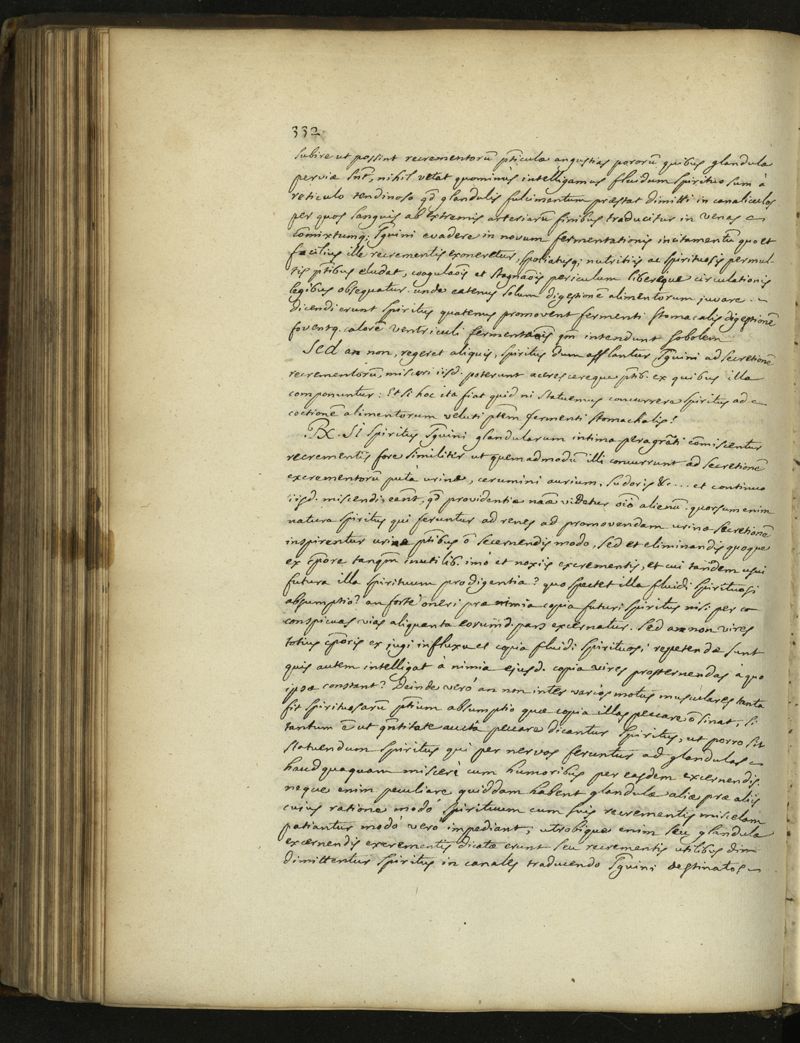 332.
subire ut possint recrementorū pticulæ angustias pororū quibus glandulæ
perviæ snt, nihil vetat quominus intelligamus fluidum spirituosum à
reticulo tendinoso qd glandulis fulcimentum præstat dimitti in canaliculos
per quos sanguis ab extremis arteriarū finibus traducitur in venas
cōmixtumq; sguini evadere in novum fermentationis incitamentū quo et
facilius ille recrementis exoneretur, spoliatusq; nutritiis ac spirituosis permul-
tis ptibus eludat, coagulaōis et stagnaōis periculum libereque circulationis
legibus obsequatur. unde eatenus solum digestionē alimentorum juvare
dicendi erunt spiritus quatenus promovent fermenti stomacalis digestionē
foventq. calorē ventriculi fermentaōis qm intendunt sobolem
Sed an non, regeret aliquis, spiritus dum afflantur sguini ad secretionē
recrementorū, misceri iisd. poterunt acres cereque ptib. ex quibus illa
componuntur: Et si hoc ita fiat quid ni statuemus concurrere spiritus ad
coctionē alimentorum veluti ptem fermenti stomachalis?
Rx. Si spiritus sguini glandularum intima peragrāti cōmiscentur
recrementis fore similiter ut quemadmodū illi concurrunt ad secretionē
excrementorū putà urinæ, cerumini aurium, sudoris &c... et continuo
iisd. miscendi eānt, qd providentiæ naæ videtur oīō alienū. quorsum enim
natura spiritus qui feruntur ad renes ad promovendam urinæ secretionē
inspirentur urinæ ptibus ō secernendis modo, sed et eliminandis quoque
ex cpore tanqm inutilib. imò et noxiis excrementis, et cui tandem usui
futura illa spirituum prodigentia? quo spectet illa fluidi spirituosi
absumptio? an fortè oneri præ nimia copia futuri spiritus nisi per
conspicuas vias aliquanta eorumd. pars excernatur. Sed an non vires
totius cporis ex jugi influxu et copia fluidi spirituosi repetendæ sunt
quis autem intelligat à nimia ejusd. copia vires prosternendas à quo
ipsæ constant? Deinde verò an non inter varios motus musculares tanta
fit spirituosarū ptium absumptio quæ copia illas peccare ō sinat, si
tantum ē ut qntitate auctâ peccare dicantur spiritus; ut porro sit
statuendum spiritus qui per nervos feruntur ad glandulas
haudquaquam misceri cum humoribus per easdem excernendis.
neque enim peculiare quiddam habent glandulæ aliæ præ aliis
cujus ratione modò spirituum cum suis recrementis miscelam
patiantur modò verò impediant; utrobique enim seu glandulæ
excernendis excrementis dicatæ erunt seu recrementis utilibus
dimittentur spiritus in canales traducendo sguini destinatos